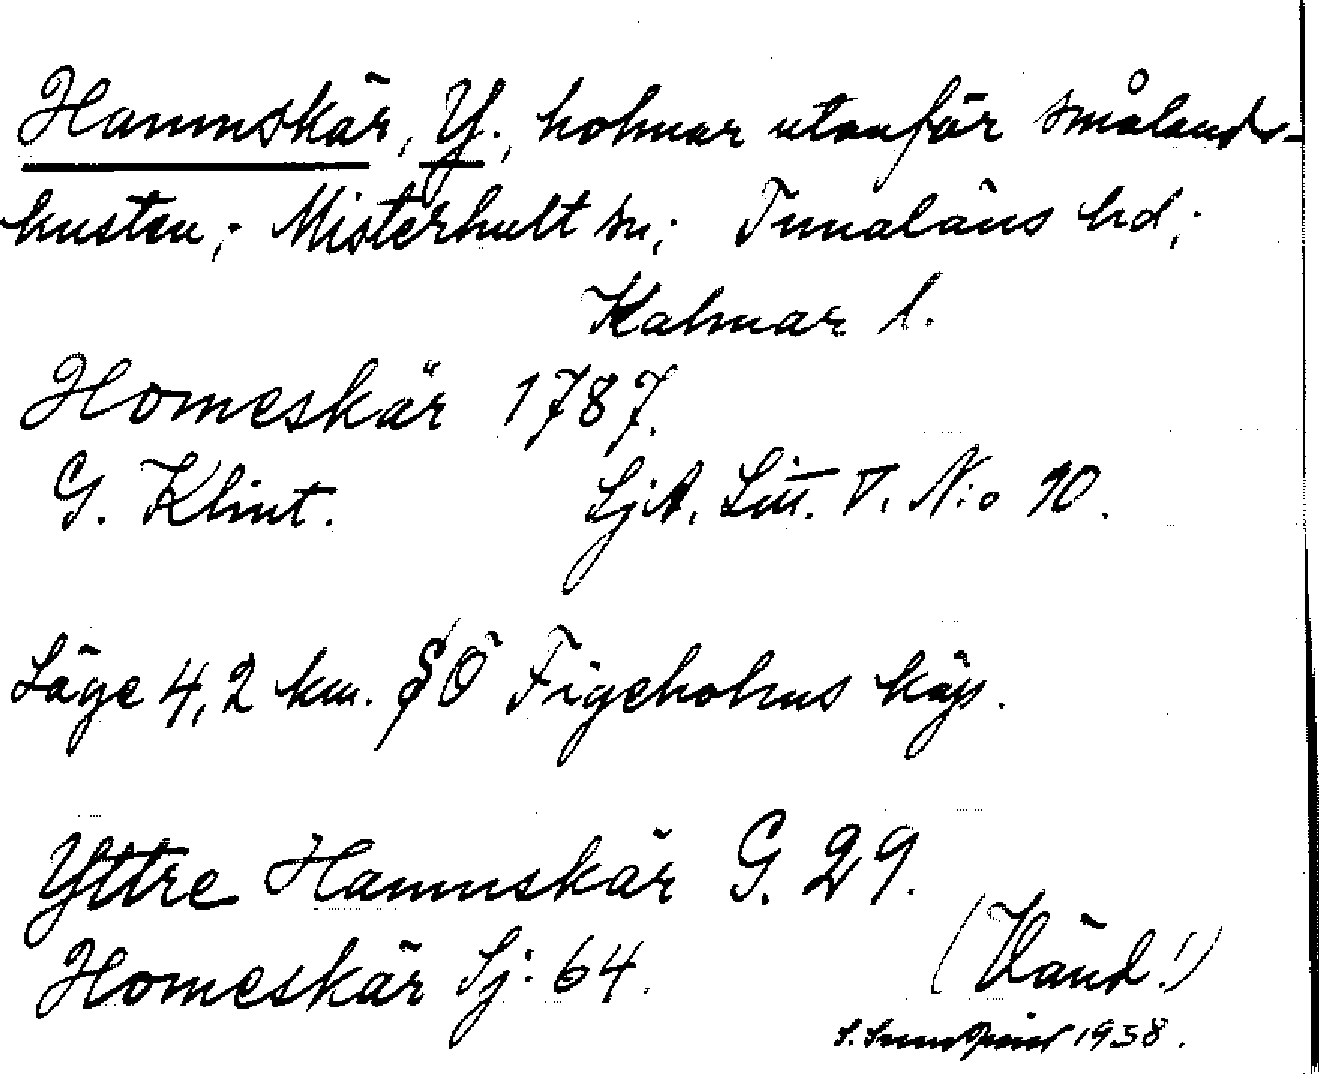 Hamnskär, Y., holmar utanför smålands-
kusten; Misterhult sn; Tunaläns hd;
Kalmar l.
Homeskär 1787.
G. Klint. SjA. Litt. V. N:o 10.
Läge 4,2 km. SÖ Figeholms köp.
Yttre Hamnskär G. 29.
Homeskär Sj: 64.
(Vänd!)
S. 1938.